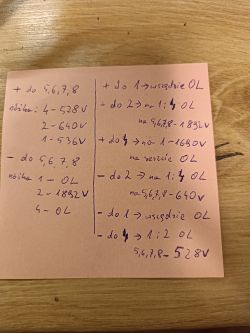 + do 5,6,7,8
nóżka: 4-528V
2-640V
1-536V
- do 5,6,7,8
nóżka 1-OL
2-1892V
4-OL
+ do 1→wszędzie OL
- do 2→na 1i4 OL
na 5,6,7,8-1892V
+ do 4→na 1-1690V
na reszcie OL
- do 2→na 1i4 OL
na 5,6,7,8-640V
- do 1→wszędzie OL
- do 4→1i2 OL
5,6,7,8-528V